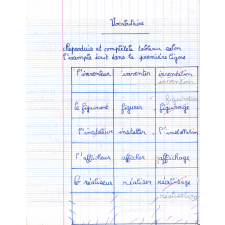 Vocabulaire
Reproduis et complète le tableau selon
l'exemple écrit dans la première ligne
l'inventeur inventer invention
invention
figuration
le figurant figurer figurage
l'installateur installer l'installation
l'afficheur afficher affichage
le réaliseur réaliser réalisage
réalisation